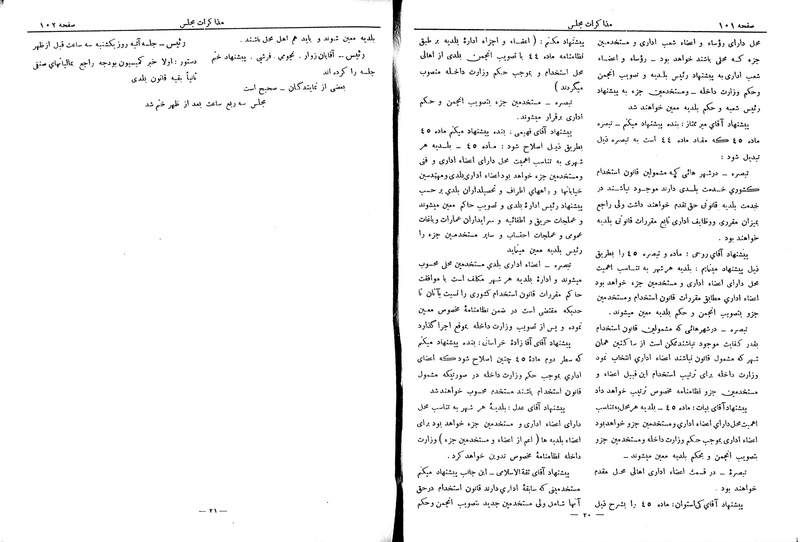 صفحه ۱۰۱
مذاکرات مجلس
محل دارای رؤساء و اعضاء شعب اداری و مستخدمین
جزء کـه محلی باشند خواهد بود ـ رؤساء و اعضـاء
شعب اداری به پیشنهاد رئیس بلـدیـه و تصویب انجمن
وحکم وزارت داخلـه ـ ومستخدمین جزء به پیشنهاد
رئیس شعبه و حکم بلدیه معین خواهند شد
پیشنهاد آقای میرممتاز : بنده پیشنهاد میکنم ـ تبصره
ماده ۴۵ که مفاد ماده ۴۴ است به تبصره ذیل
تبدیل شود :
تبصره ـ درشهر هائی که مشمولین قانون استخدام
کشوری خدمت بلـدی دارند موجود نباشنـد در
خدمت بلدیه قانونی حق تقدم خواهند داشت ولی راجع
بمیزان مقرری ووظایف اداری تابع مقررات قانونی بلدیه
خواهند بود .
پیشنهاد آقای روحی : ماده و تبصره ۴۵ را بطریق
ذیل پیشنهاد مینمایم : بلدیه هر شهر به تناسب اهمیت
محل دارای اعضاء اداری و مستخدمین جزء خواهد بود
اعضاء اداری مطابق مقررات قانون استخدام ومستخدمین
جزو بتصویب انجمن و حکم بلدیه معین میشوند .
تبصره ـ درشهرهائی که مشمولین قانون استخدام
بقدر کفایت موجود نباشندممکن است از ساکنین همان
شهر که مشمول قانون نباشند اعضاء اداری انتخاب نمود
وزارت داخله برای ترتیب استخدام این قبیل اعضاء و
مستخدمین جزو نظامنامه مخصوص ترتیب خواهد داد
پیشنهاد آقای بیات : ماده ۴۵ ـ بلدیه هرمحل به تناسب
اهمیت محل دارای اعضاء اداری ومستخدمین جزو خواهدبود
اعضاء اداری بموجب حکم وزارت داخله ومستخدمین جزو
بتصویب انجمن و بحکم بلدیه معین میشوند ـ
تبصرة ـ در قسمت اعضاء اداری اهالی محـل مقدم
خواهند بود .
پیشنهاد آقای کی استوان: ماده ۴۵ را بشرح ذیل
پیشنهاد میکنم : ( اعضـاء و اجزاء ادارة بلدیه بر طبق
نظامنامه ماده ۴۴ با تصویب انجمن بلدی از اهالی
محل استخدام و بموجب حکم وزارت داخله منصوب
میگردند )
تبصره ـ مستخدمین جزء بتصویب انجمن و حکم
اداری برقرار میشوند .
پیشنهاد آقای فهیمی : بنده پیشنهاد میکنم ماده ۴۵
بطریق ذیـل اصلاح شود : مـاده ۴۵ ـ بلـدیه هر
شهری به تناسب اهمیت محل دارای اعضاء اداری و فنی
ومستخدمین جزء خواهد بود اعضاء اداری بلدی ومهندسین
خیابانها و راههای اطراف و تحصیلداران بلدی بر حسب
پیشنهاد رئیس ادارة بلدی و تصویب حاکم معین میشوند
و عملجات حریق و اطفائیه و سرایداران عمارات وباغات
عمومی و عملجات احتساب و سایر مستخدمین جزء را
رئیس بلدیه معین مینماید
تبصره ـ اعضاء اداری بلدی مستخدمین محلی محسوب
میشوند و ادارة بلدیه هر شهر مکلف است با موافقت
حاکم مقررات قانون استخدام کشوری را نسبت بآنان تا
حدیکه مقتضی است در ضمن نظامنامه مخصوص معین
نموده و پس از تصویب وزارت داخله بموقع اجرا گذارد
پیشنهاد آقای آقا زادة خراسانی : بنده پیشنهاد میکنم
که سطر دوم مادة ۴۵ چنین اصلاح شود که اعضای
اداری بموجب حکم وزارت داخله در صورتیکه مشمول
قانون استخدام باشند مستخدم محسوب خواهند شد
پیشنهاد آقای عدل : بلدیـة هر شهر به تناسب محل
دارای اعضاء اداری و مستخدمین جزء خواهد بود برای
اعضاء بلدیه ها ( اعم از اعضاء و مستخدمین جزء ) وزارت
داخله نظامنامة مخصوص تدوین خواهد کرد .
پیشنهاد آقای ثقةالاسلامی ـ این جانب پیشنهاد میکنم
مستخدمینی که سابقة اداری دارند قانون استخدام درحق
آنها شامل ولی مستخدمین جدید بتصویب انجمن وحکم
ـ ۲۰ ـ
مذاکرات مجلس
صفحه ۱۰۲
بلدیه معین شوند و باید هم اهل محل باشند .
رئیس ـ آقایان زوار . نجومی . فرشی . پیشنهاد ختم
جلسه را کرده اند
بعضی از نمایندگان ـ صحیح است
رئیس ـ جلسه آتیه روز یکشنبه سه ساعت قبل از ظهر
دستور : اولا خبر کمیسیون بودجه راجع بمالیاتهای صنفی
ثانیاً بقیه قانون بلدی
مجلس سه ربع ساعت بعد از ظهر ختم شد
ـ ۲۱ ـ